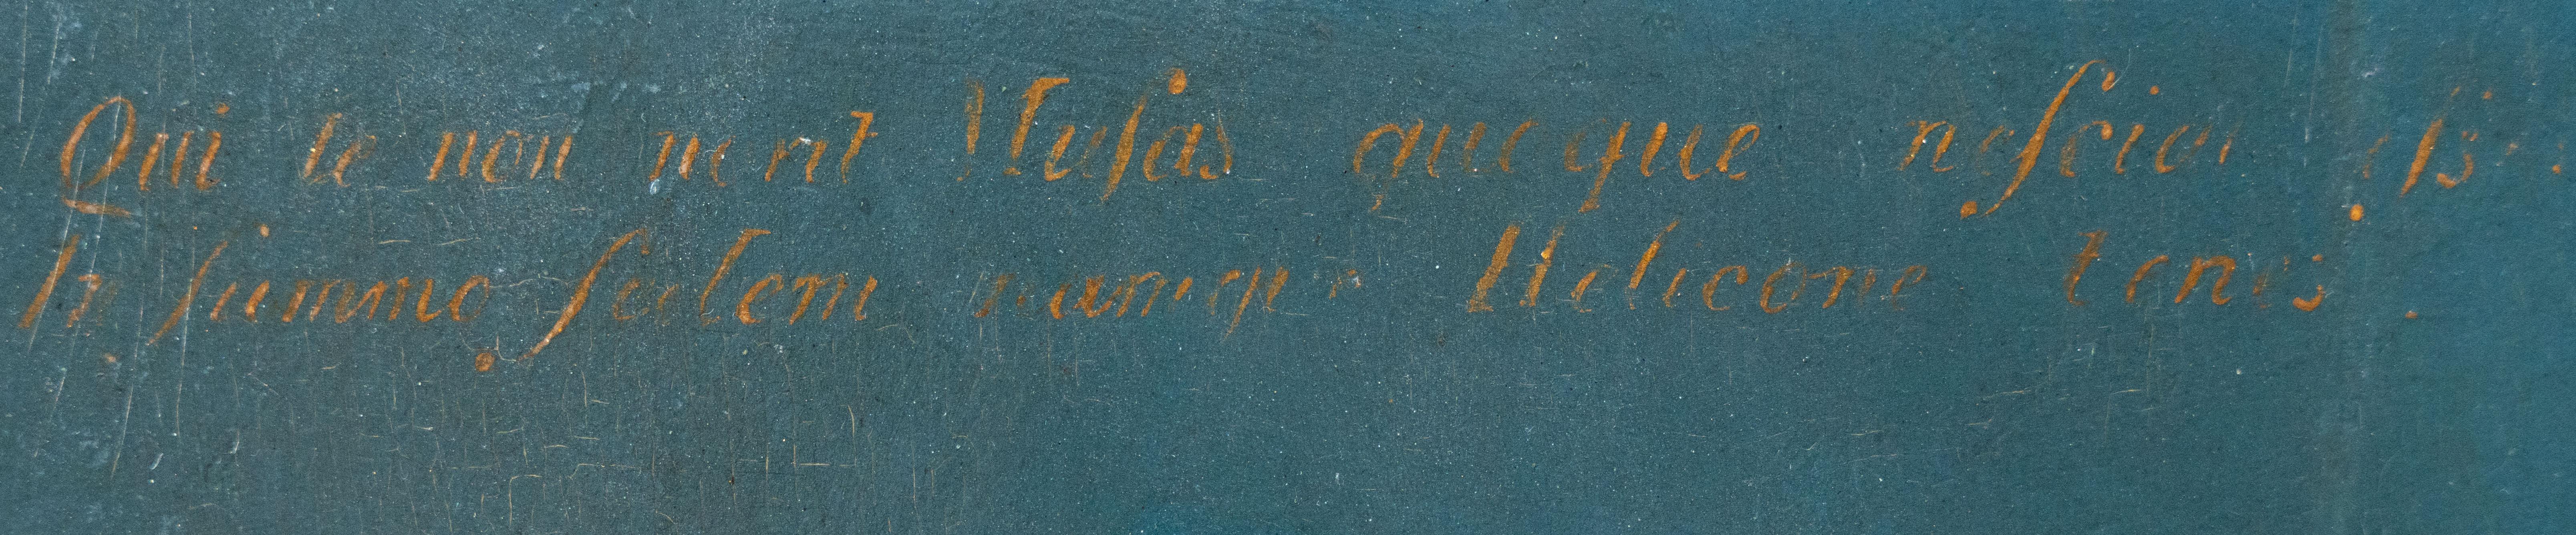 Qui te non nerit Musas queque neſciat
In ſummo ſedem namque Helicone tenes.